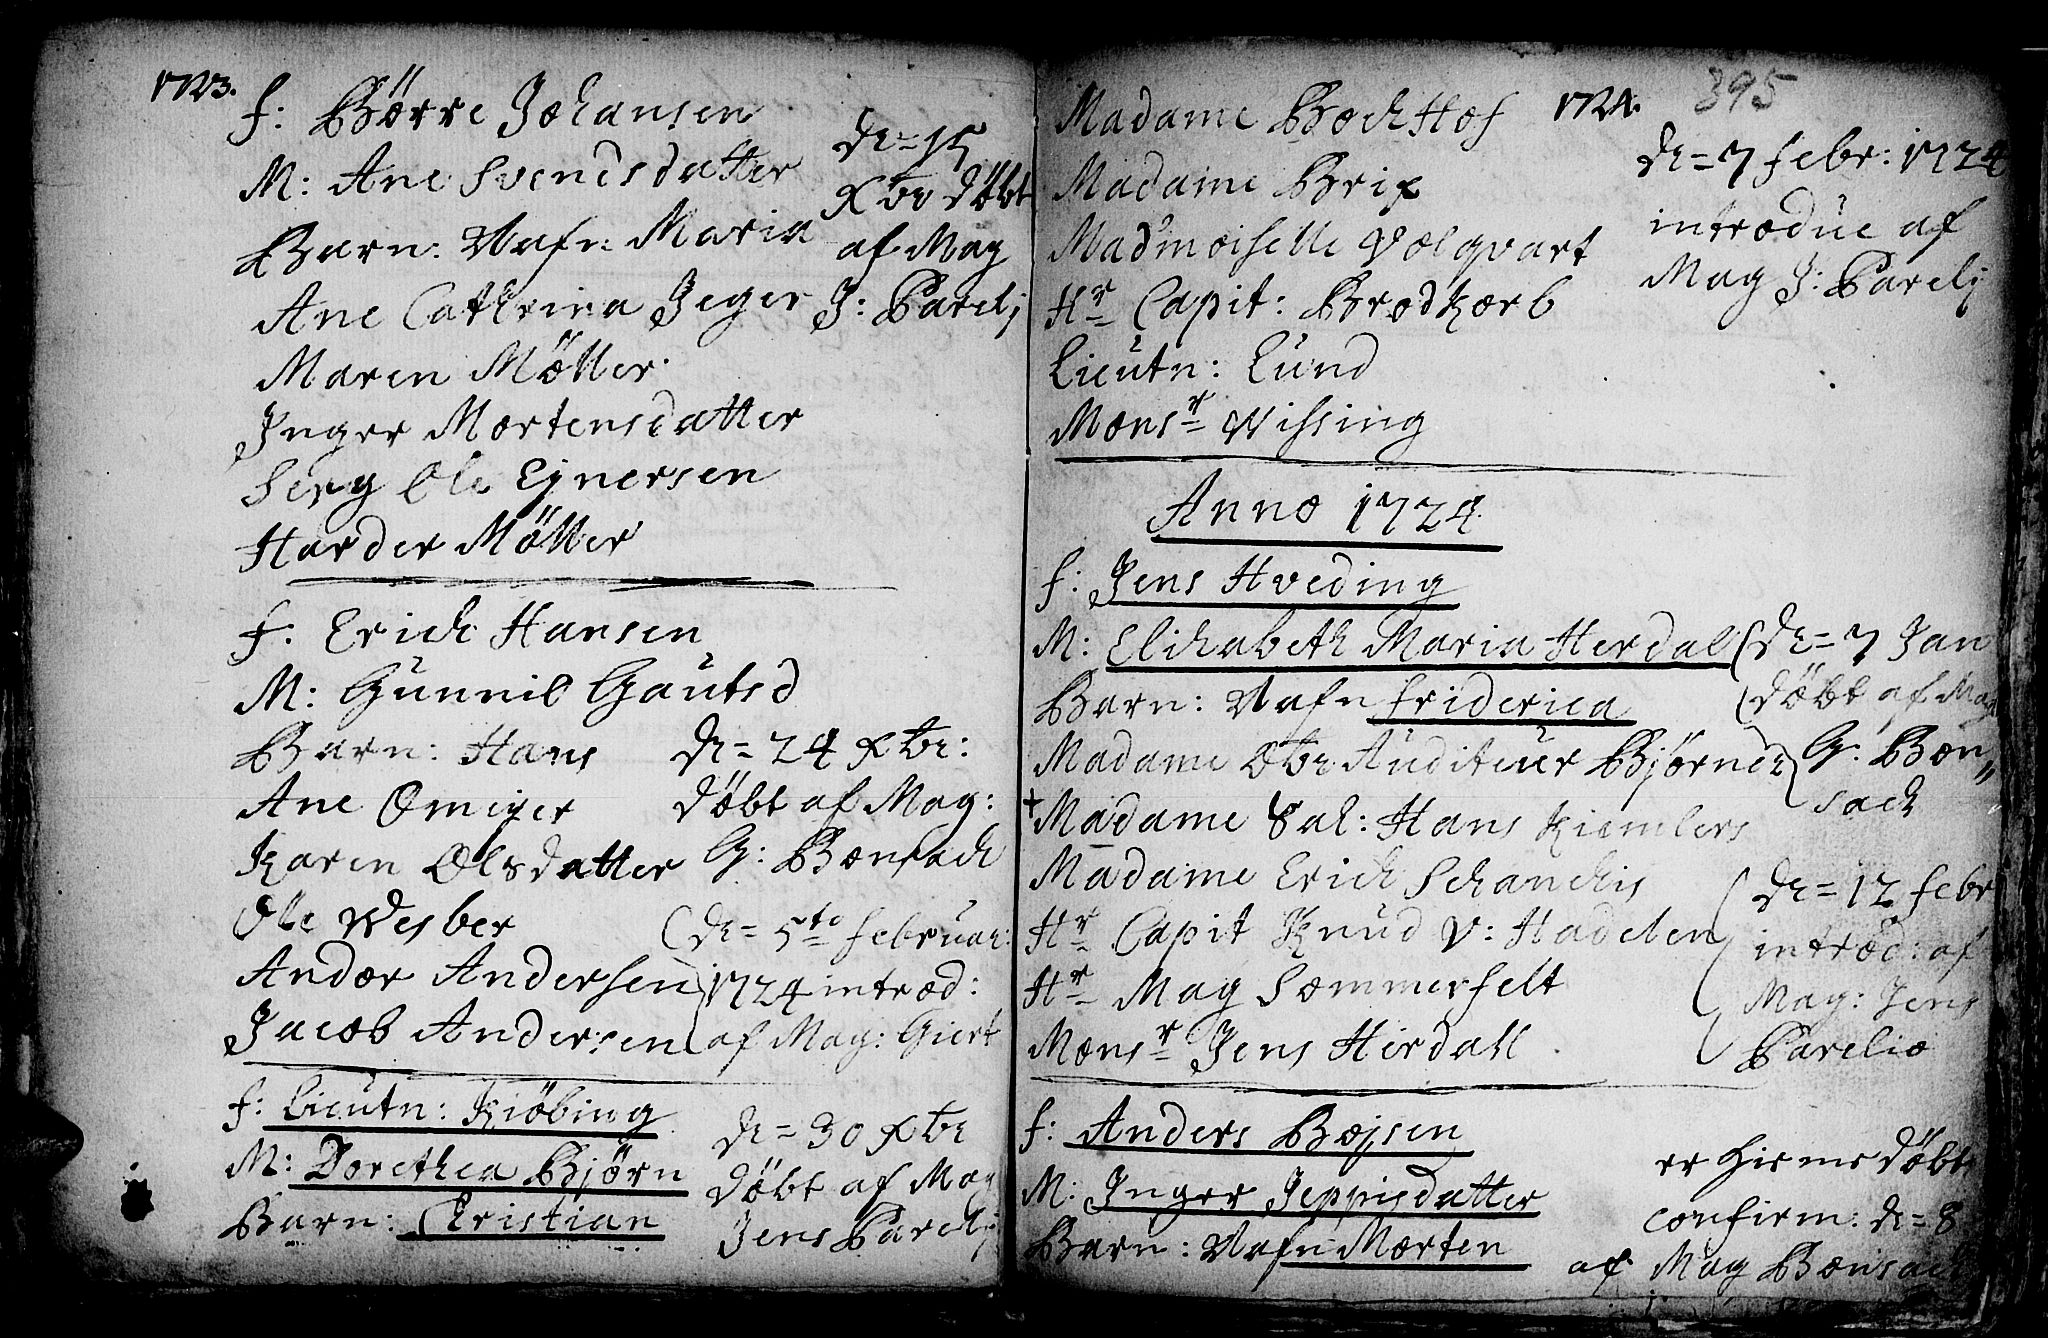 1723.
f: Børre Johansen
M: Ane Svendsdatter
Barn: Nafn: Maria
Ane Cathrina Jeger
Maren Möller.
Inger Mortensdatter
Serg Ole Ejnersen
Harder Möller
dn = 15
Xbr döbt
af Mag
J: Parelj
f: Erich Hansen
M: Gunnil Gautsd
Barn: Hans
Ane
Karen Olsdatter
Ole Wesber
Andor Andersen
Jacob Andersen
dn = 24 Xbr:
döbt af Mag:
G: Bonsach
dn = 5to februar:
1724 introd:
af Mag: Giert
f: Lieutn: Kiöbing
M: Dorethea Bjørn
Barn: Christian
dn = 30 Xbr
döbt af Mag
Jens Parelj
1724. 395
Madame Bochhof
Madame Brix
Madmoiselle Volqvart
Hr Capit: Brodkorb
Lieutn: Lund
Monsr Wissing
dn = 7 febr: 1724
introdue af
Mag J: Parelj
Anno 1724.
f: Jens Hveding
M: Elichabeth Maria Herdal
Barn: Nafn Friderica
Madame Obr Auditeur Bjørner
+ Madame Sal: Hans Kiemlers
Madame Erich Schanchis
Hr Capit Knud V: Hadelen
Hr Mag Sommerfelt
Monsr Jens Herdall
dn = 7 Jan
döbt af Mag
G: Bon„
sach
dn = 12 febr
introd: af
Mag: Jens
Parelio
f: Anders Bojsen
M: Inger Jeppisdatter
Barn: Nafn Morten
er hiemedöbt
confirm: dn = 8
af Mag Bonsach